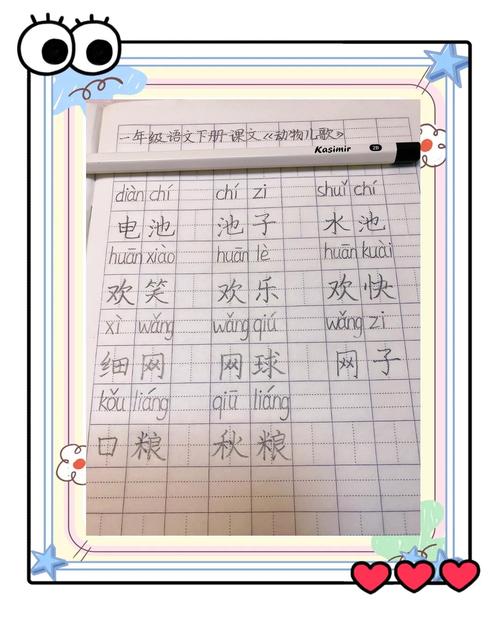 一年级语文下册课文《动物儿歌》
Kasimir 2B
diàn chí chí zi shuǐ chí
电池 池子 水池
huān xiào huān lè huān kuài
欢笑 欢乐 欢快
xì wǎng wǎng qiú wǎng zi
细网 网球 网子
kǒu liáng qiū liáng
口粮 秋粮